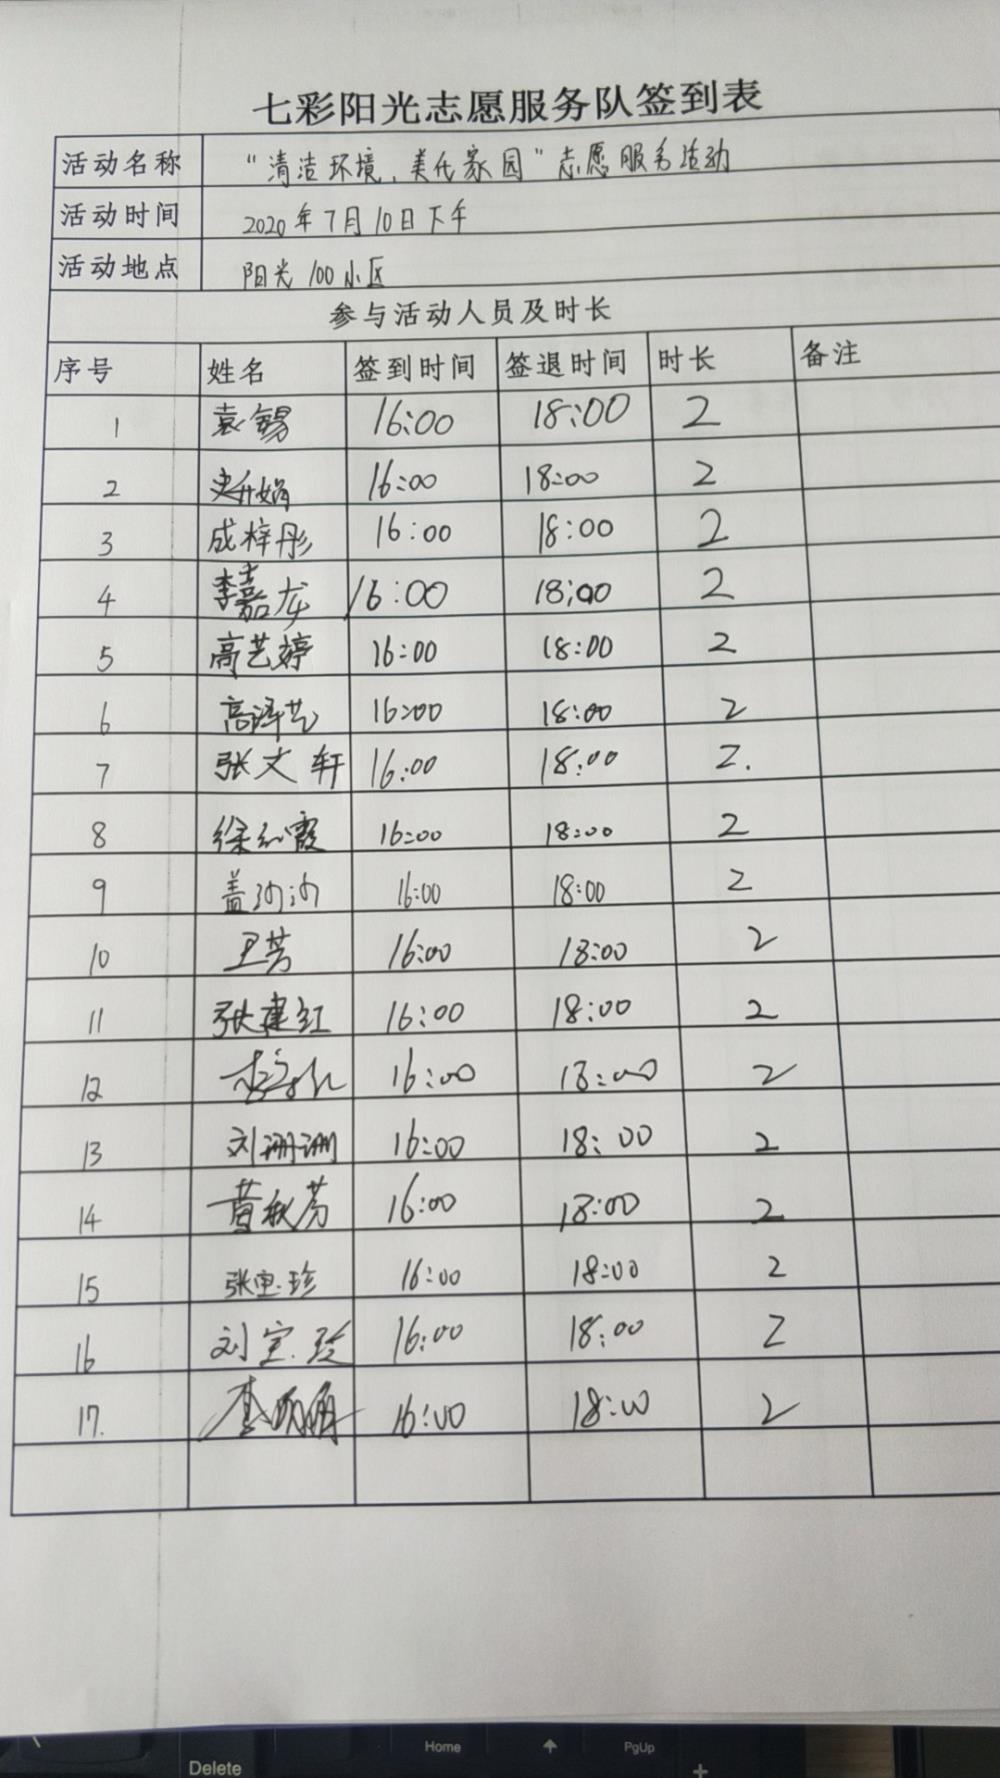 七彩阳光志愿服务队签到表
活动名称 "清洁环境、美化家园"志愿服务活动
活动时间 2020年7月10日下午
活动地点 阳光100小区
参与活动人员及时长
序号 姓名 签到时间 签退时间 时长 备注
1 袁锡 16:00 18:00 2
2 16:00 18:00 2
3 成梓彤 16:00 18:00 2
4 李嘉龙 16:00 18:00 2
5 高艺婷 16:00 18:00 2
6 高泽艺 16:00 18:00 2
7 张文轩 16:00 18:00 2.
8 徐红霞 16:00 18:00 2
9 盖 16:00 18:00 2
10 卫芳 16:00 18:00 2
11 张建红 16:00 18:00 2
12 16:00 18:00 2
13 刘珊珊 16:00 18:00 2
14 黄秋芳 16:00 18:00 2
15 张宝珍 16:00 18:00 2
16 刘宝珍 16:00 18:00 2
17. 李 16:00 18:00 2
Delete Home PgUp